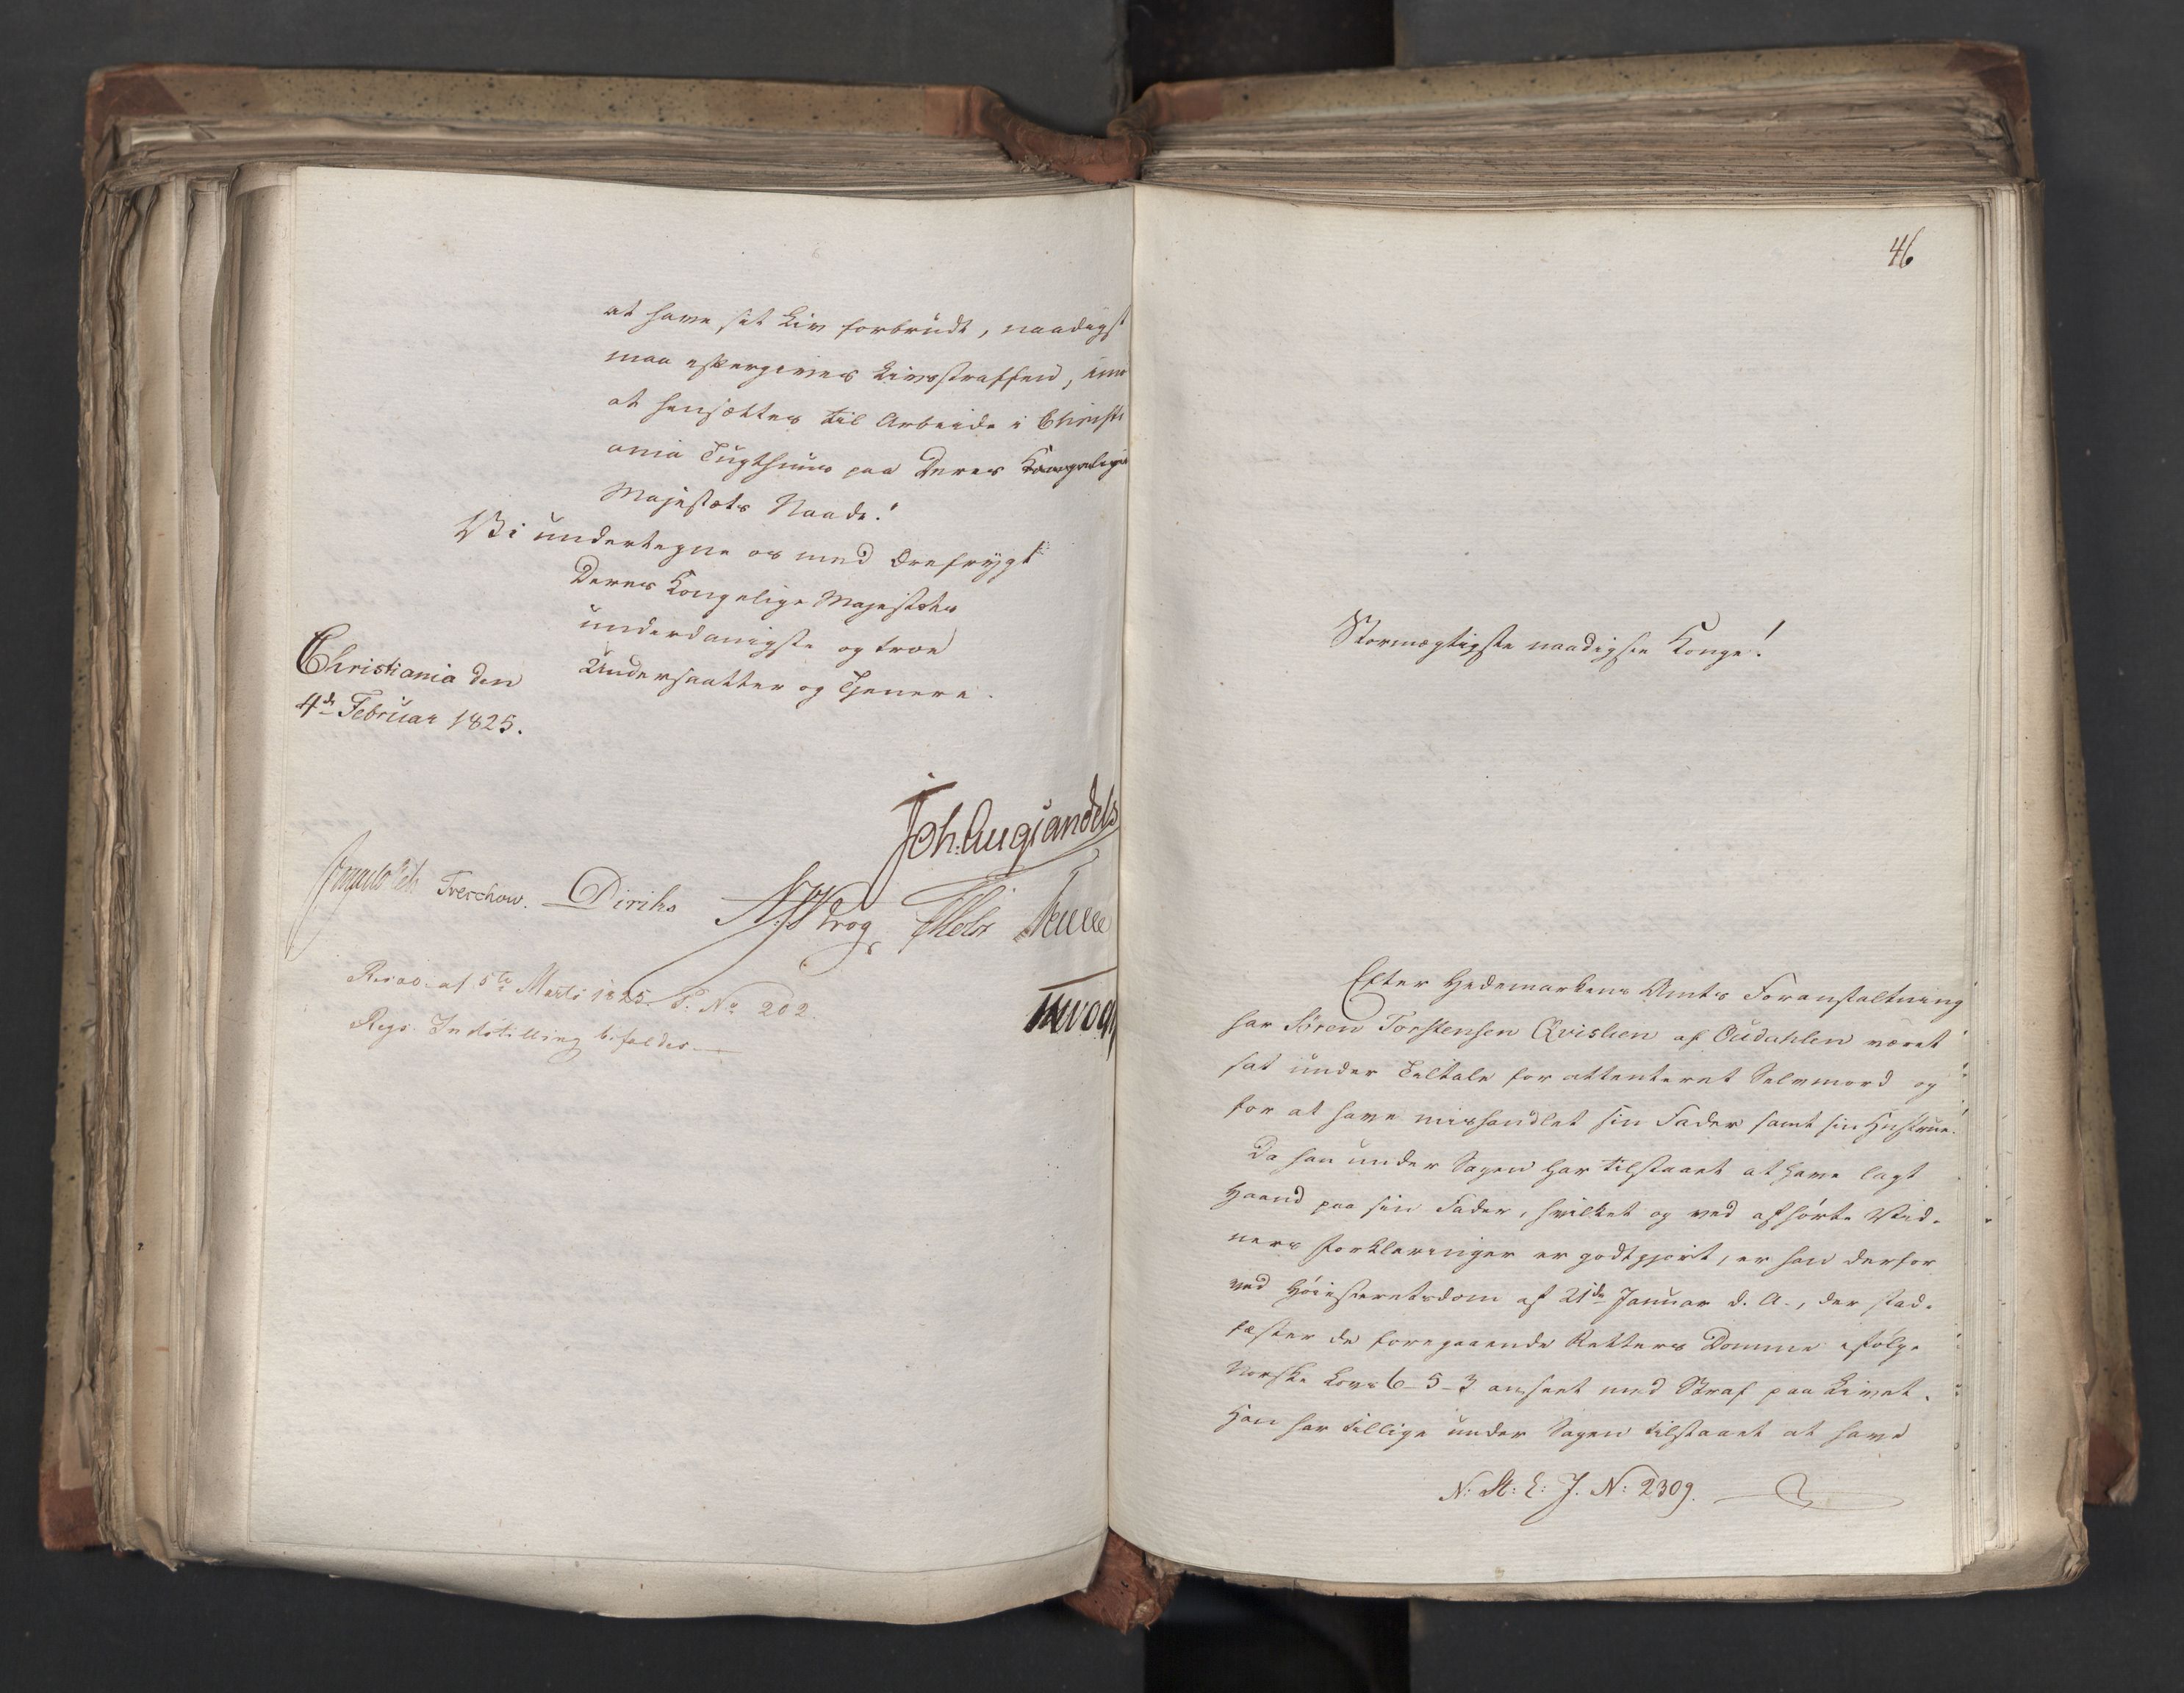 at have sit Liv forbrudt, naadigst
maa eftergives Livsstraffen, imod
at hensættes til Arbeide i Christi
ania Tugthuus paa Deres Kongelige
Majestæts Naade.
Vi undertegne os med Ærefrygt
Deres Kongelige Majestæts
underdanigste og troe
Undersaatter og Tjenere.
Christiania den
4de Februar 1825.
Joh: Aug: Sandels
Treschow. Diriks Krog
Resol: af 5te Marts 1825. P. No 202.
Regs Indstilling bifaldes.
46
Stormægtigste naadigste Konge!
Efter Hedemarkens Amts Foranstaltning
har Sören Torstensen Qvislien af Oudahlen været
sat under Tiltale for attenteret Selvmord og
for at have mishandlet sin Fader samt sin Hustrue.
Da han under Sagen har tilstaaet at have lagt
Haand paa sin Fader, hvilket og ved afhörte Vid-
ners Forklaringer er godtgjort, er han derfor
ved Höiesteretsdom af 21de Januar d. A., der stad-
fæster de foregaaende Retters Domme ifölge
Norske Lovs 6-5-3 anseet med Straf paa Livet.
Han har tillige under Sagen tilstaaet at have
N: St: E: J. N: 2309.